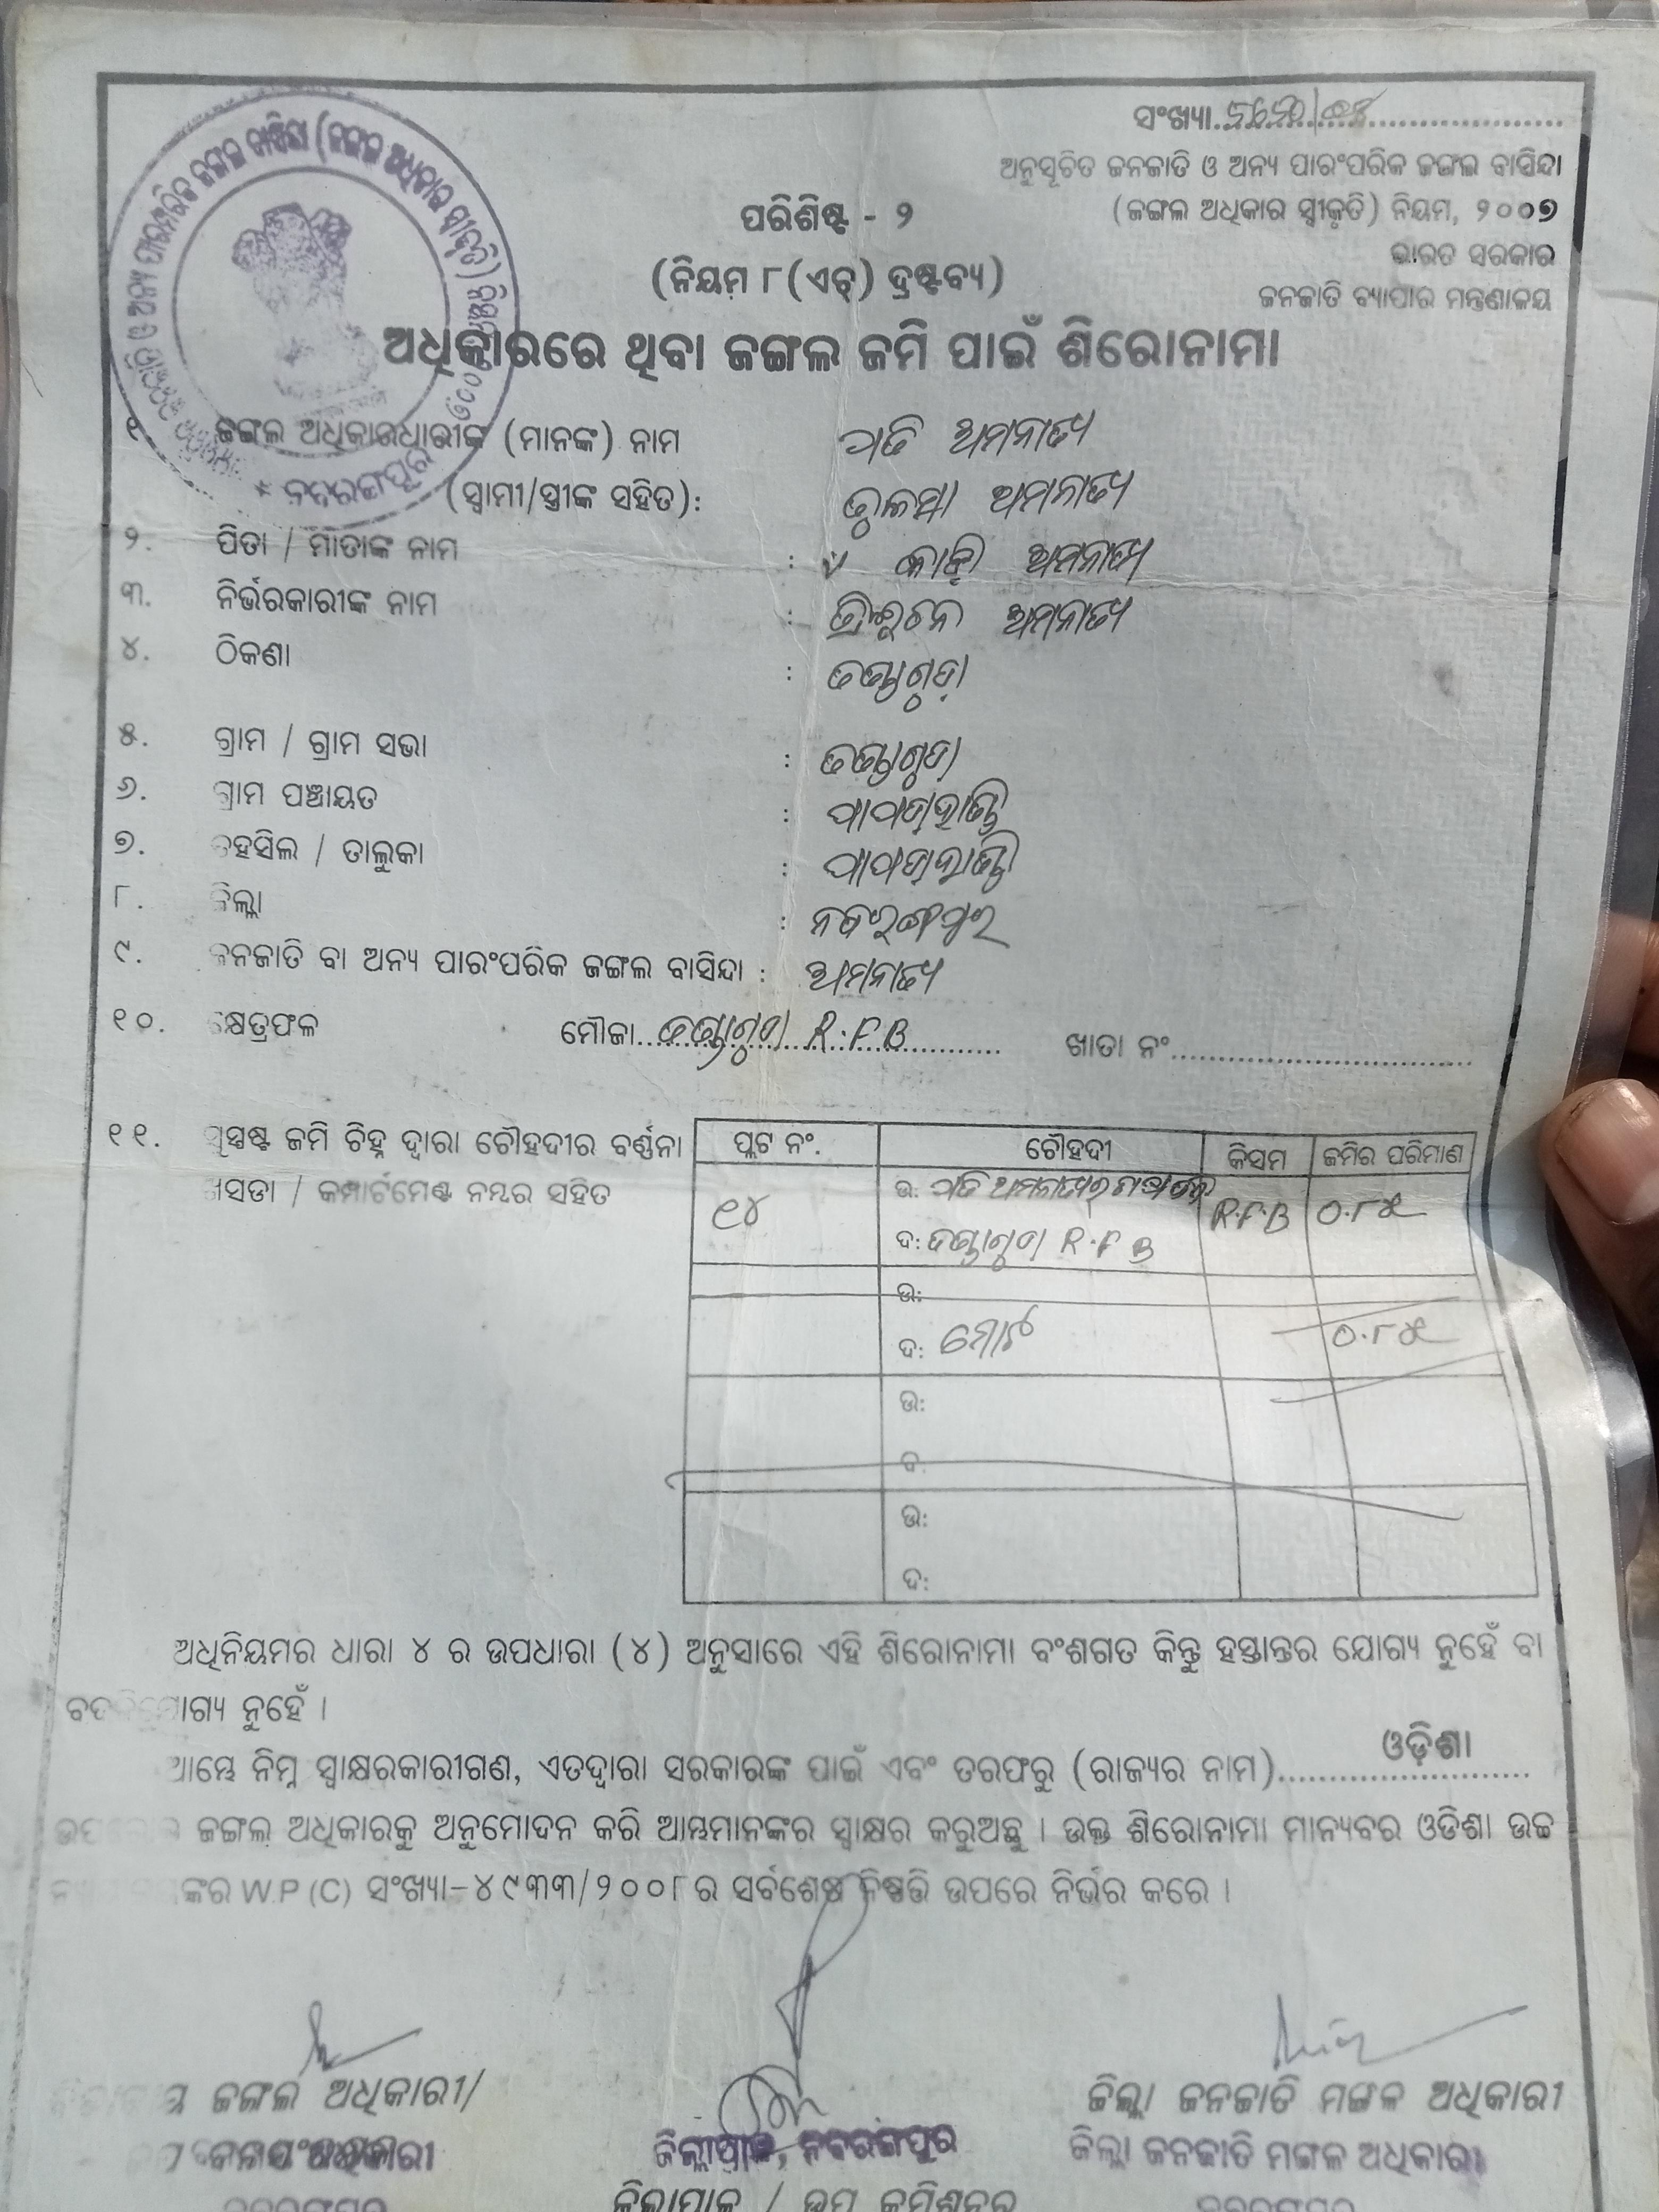 ସଂଖ୍ୟା
ଅନୁସୂଚିତ ଜନଜାତି ଓ ଅନ୍ୟ ପାରଂପରିକ ଜଙ୍ଗଲ ବାସିନ୍ଦା
(ଜଙ୍ଗଲ ଅଧିକାର ସ୍ୱୀକୃତି) ନିୟମ, ୨୦୦୭
ଭାରତ ସରକାର
ଜନଜାତି ବ୍ୟାପାର ମନ୍ତ୍ରଣାଳୟ
ପରିଶିଷ୍ଟ - ୨
(ନିୟମ ୮(ଏଚ୍) ଦ୍ରଷ୍ଟବ୍ୟ)
ଅଧିକାରରେ ଥିବା ଜଙ୍ଗଲ ଜମି ପାଇଁ ଶିରୋନାମା
୧ ଜଙ୍ଗଲ ଅଧିକାରଧାରୀଙ୍କ (ମାନଙ୍କ) ନାମ ଅମନାତ୍ୟ
(ସ୍ୱାମୀ/ସ୍ତ୍ରୀଙ୍କ ସହିତ): ଅମନାତ୍ୟ
୨. ପିତା / ମାତାଙ୍କ ନାମ : ଅମନାତ୍ୟ
୩. ନିର୍ଭରକାରୀଙ୍କ ନାମ : ଅମନାତ୍ୟ
୪. ଠିକଣା :
୫. ଗ୍ରାମ / ଗ୍ରାମ ସଭା :
୬. ଗ୍ରାମ ପଞ୍ଚାୟତ : ପାପଡ଼ାହାଣ୍ଡି
୭. ତହସିଲ / ତାଲୁକା : ପାପଡ଼ାହାଣ୍ଡି
୮. ଜିଲ୍ଲା : ନବରଙ୍ଗପୁର
୯. ଜନଜାତି ବା ଅନ୍ୟ ପାରଂପରିକ ଜଙ୍ଗଲ ବାସିନ୍ଦା : ଅମନାତ୍ୟ
୧୦. କ୍ଷେତ୍ରଫଳ ମୌଜା R.F.B ଖାତା ନଂ
୧୧. ସୁସ୍ପଷ୍ଟ ଜମି ଚିହ୍ନ ଦ୍ୱାରା ଚୌହଦୀର ବର୍ଣ୍ଣନା
ଖସଡା / କମ୍ପାର୍ଟମେଣ୍ଟ ନମ୍ବର ସହିତ
ପ୍ଲଟ ନଂ. ଚୌହଦୀ କିସମ ଜମିର ପରିମାଣ
୧୪ ଉ: R.F.B ୦.୮୫
ଦ: R.F.B
ଉ:
ଦ: ମୋଟ ୦.୮୫
ଉ:
ଦ:
ଉ:
ଦ:
ଅଧିନିୟମର ଧାରା ୪ ର ଉପଧାରା (୪) ଅନୁସାରେ ଏହି ଶିରୋନାମା ବଂଶଗତ କିନ୍ତୁ ହସ୍ତାନ୍ତର ଯୋଗ୍ୟ ନୁହେଁ ବା
ନୁହେଁ ।
ଆମ୍ଭେ ନିମ୍ନ ସ୍ୱାକ୍ଷରକାରୀଗଣ, ଏତଦ୍ୱାରା ସରକାରଙ୍କ ପାଇଁ ଏବଂ ତରଫରୁ (ରାଜ୍ୟର ନାମ) ଓଡ଼ିଶା
ଜଙ୍ଗଲ ଅଧିକାରକୁ ଅନୁମୋଦନ କରି ଆମ୍ଭମାନଙ୍କର ସ୍ୱାକ୍ଷର କରୁଅଛୁ । ଉକ୍ତ ଶିରୋନାମା ମାନ୍ୟବର ଓଡିଶା ଉଚ୍ଚ
W.P (C) ସଂଖ୍ୟା-୪୯୩୩/୨୦୦୮ର ସର୍ବଶେଷ ନିଷ୍ପତ୍ତି ଉପରେ ନିର୍ଭର କରେ ।
ଜଙ୍ଗଲ ଅଧିକାରୀ/ ଜିଲ୍ଲା ଜନଜାତି ମଙ୍ଗଳ ଅଧିକାରୀ
ଜିଲ୍ଲାପାଳ, ନବରଙ୍ଗପୁର ଜିଲ୍ଲା ଜନଜାତି ମଙ୍ଗଳ ଅଧିକାରୀ
ଜିଲାପାଳ / ଉପ କମିଶନର